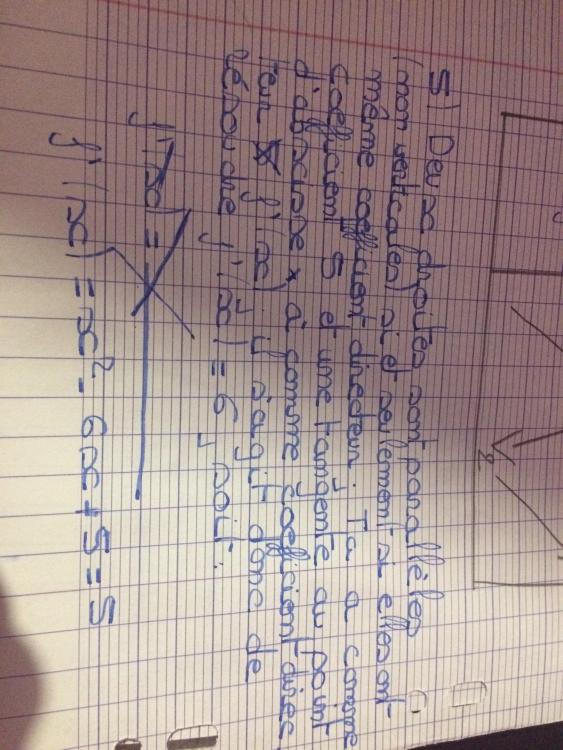 5) Deux droites sont parallèles
(non verticales) si et seulement si elles ont
même coefficient directeur. Ta a comme
coefficient 5 et une tangente au point
d'abscisse x à comme coefficient direc
teur f'(x) il s'agit donc de
résoudre f'(x) = 6, soit:
f'(x) =
f'(x) = x² - 6x + 5 = 5
2